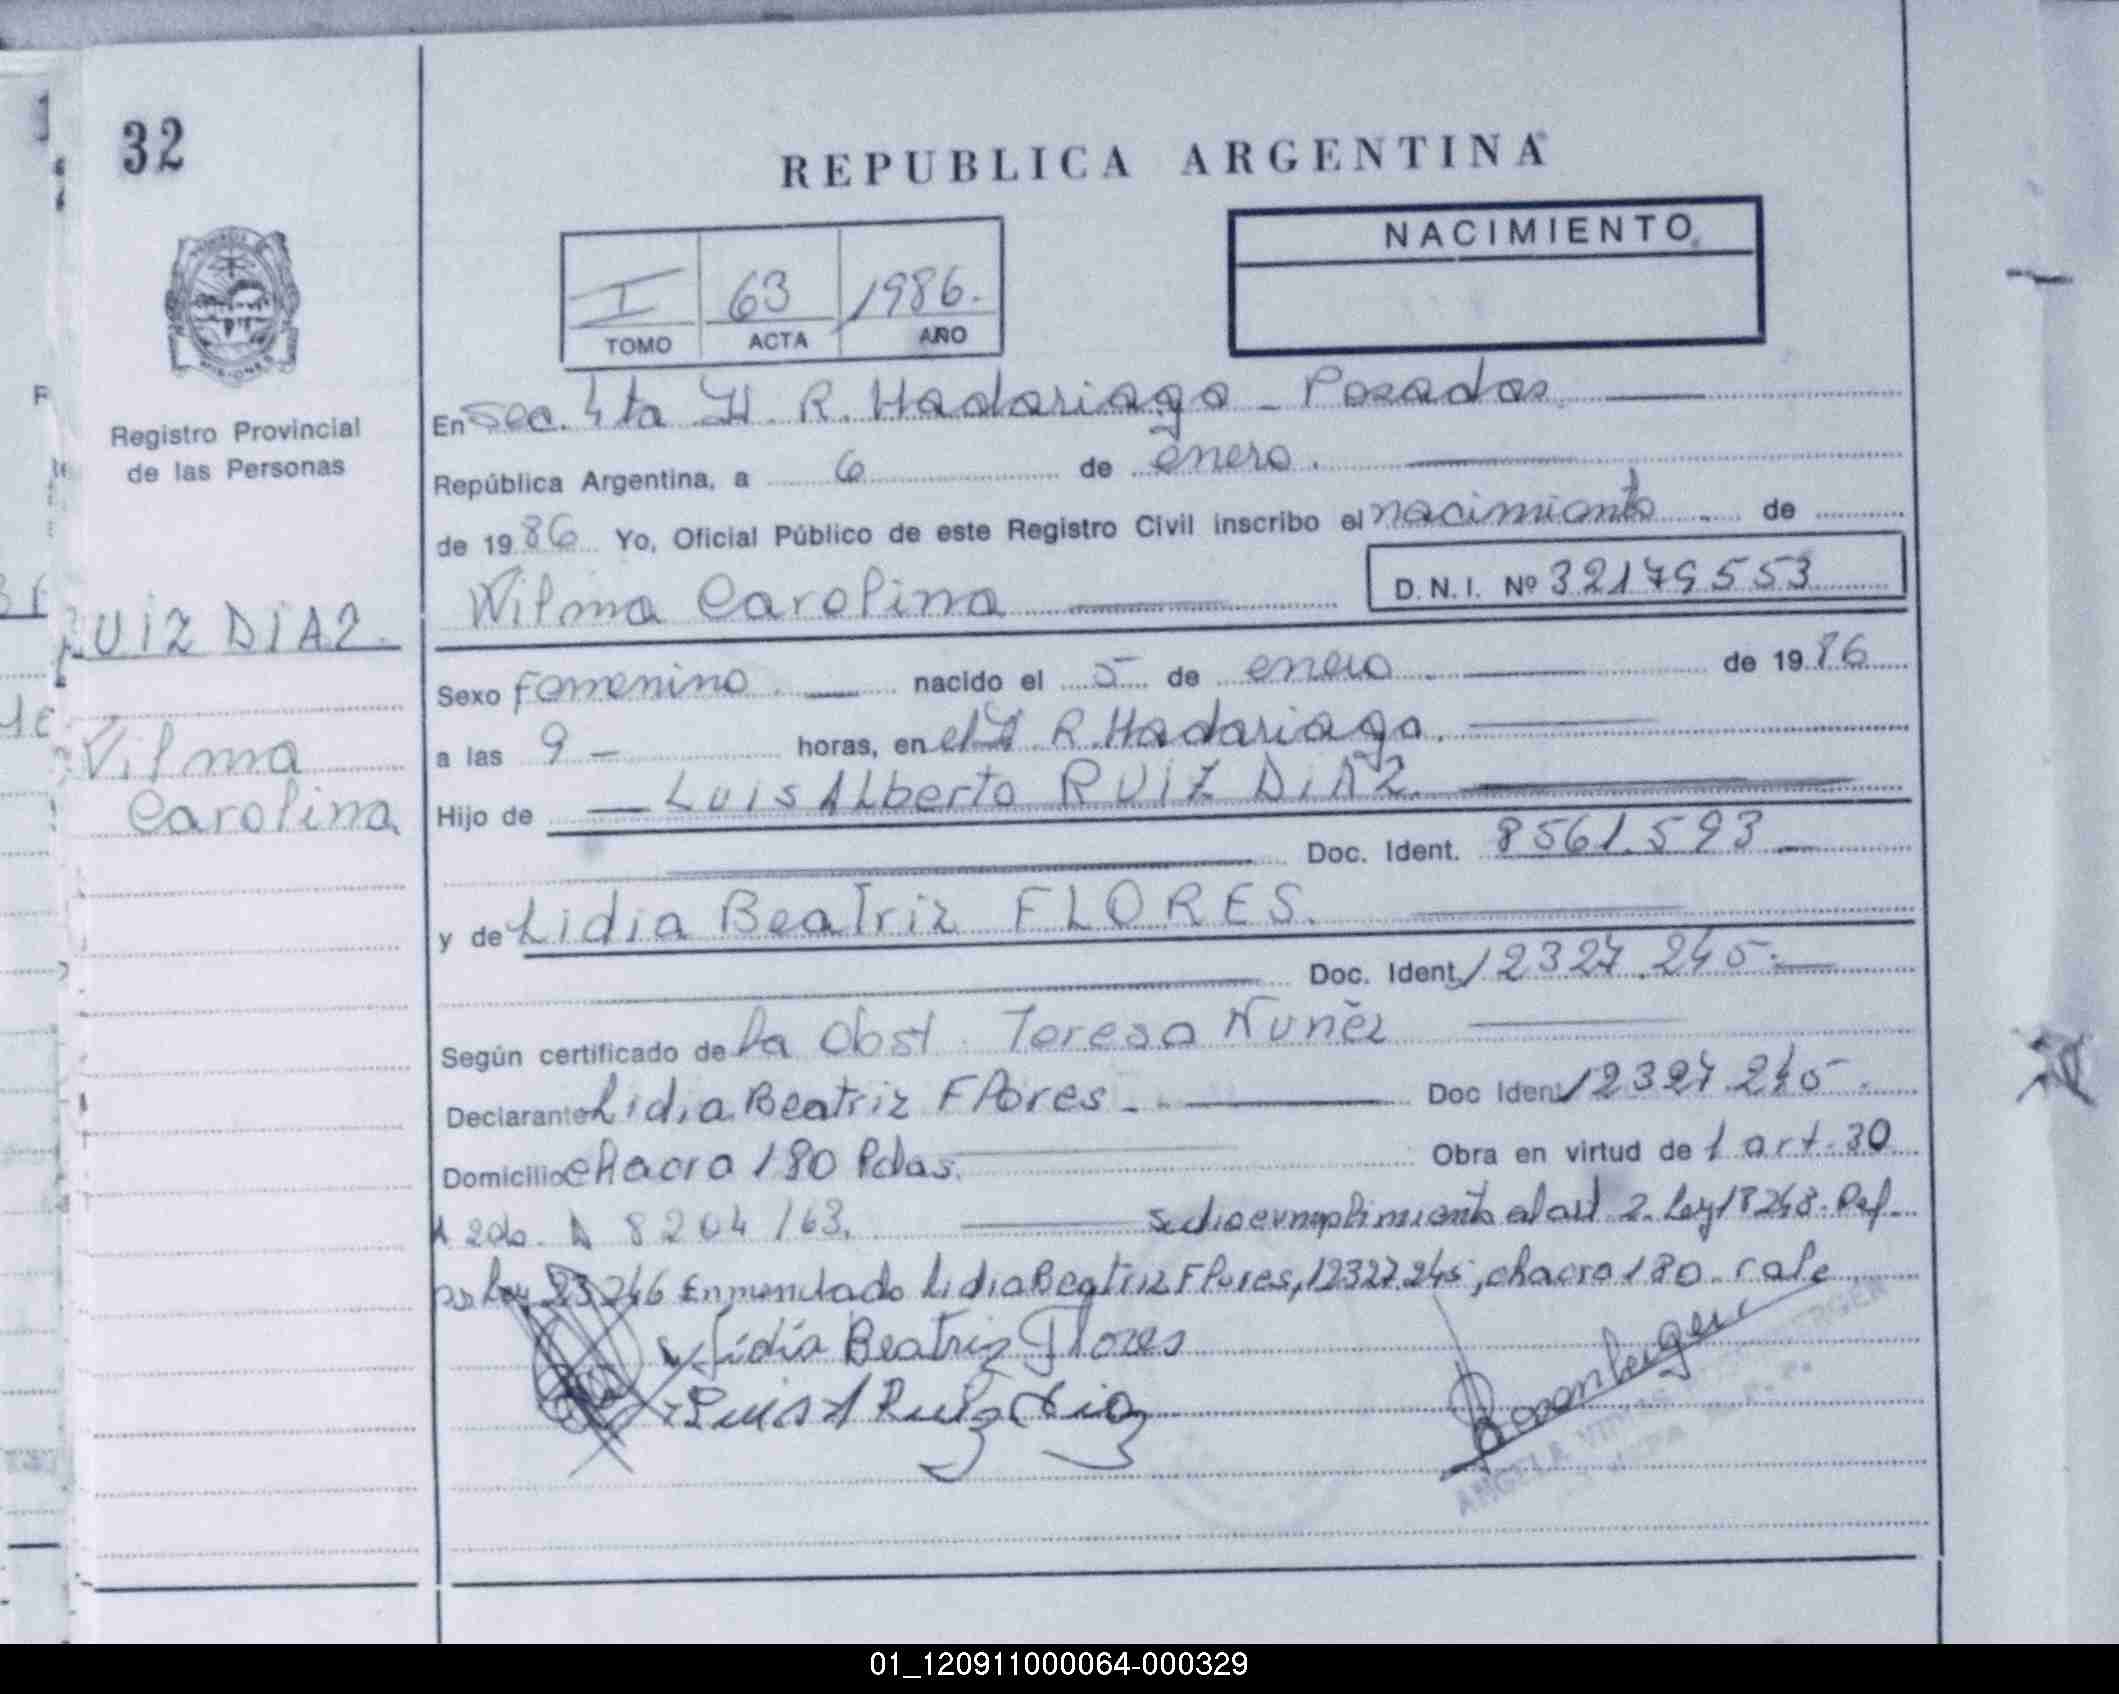 32
REPUBLICA ARGENTINA
NACIMIENTO
I 63 1986.
TOMO ACTA AÑO
Registro Provincial
de las Personas
En Sec. 4ta H. R. Madariaga - Posadas
República Argentina, a 6 de enero.
de 1986 Yo, Oficial Público de este Registro Civil inscribo el nacimiento de
Wilma Carolina D.N.I. Nº 32179553
RUIZ DIAZ
Wilma
Carolina
Sexo Femenino nacido el 5 de enero de 1986
a las 9 horas, en el H R. Madariaga.
Hijo de Luis Alberto RUIZ DIAZ.
Doc. Ident. 8561.593
y de Lidia Beatriz FLORES.
Doc. Ident. 12327.245.
Según certificado de la Obst. Teresa Nuñez
Declarante Lidia Beatriz Flores - Doc Ident 12327.245.
Domicilio chacra 180 Pdas. Obra en virtud de l art. 30
8204/63. Se dio cumplimiento al art 2. Ley 18248. Ref.
por Ley 23246 Enmendado Lidia Beatriz Flores, 12327.245, chacra 180. Vale
Lidia Beatriz Flores
Luis A Ruiz Diaz
01_120911000064-000329